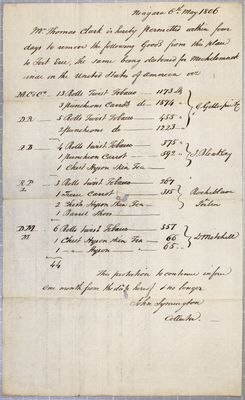 Niagara 6th May 1806
Mr Thomas Clark is hereby Permitted within four
days to remove the following Goods from this place
to Fort Erie, the same being destined for Michilimack
inac in the United States of America viz
13 Rolls Twist Tobacco 1173 lb
3 puncheons Carrots do 1874
D R 5 Rolls Twist Tobacco 455
2 puncheons do 1223
4 Rolls twist Tobacco 375
1 puncheon Carrot 392
1 Chest Hyson Skin Tea
R P 3 Rolls twist Tobacco 267
1 Tierce Carrot 315
2 Chests Hyson Skin Tea
1 Barrel Shot
D. M. 6 Rolls twist Tobacco 557
1 Chest Hyson Skin Tea 66
1 Hyson 65
D Mitchell
44
This protection to continue in force
one month from the date hereof & no longer
John Symington
Collector